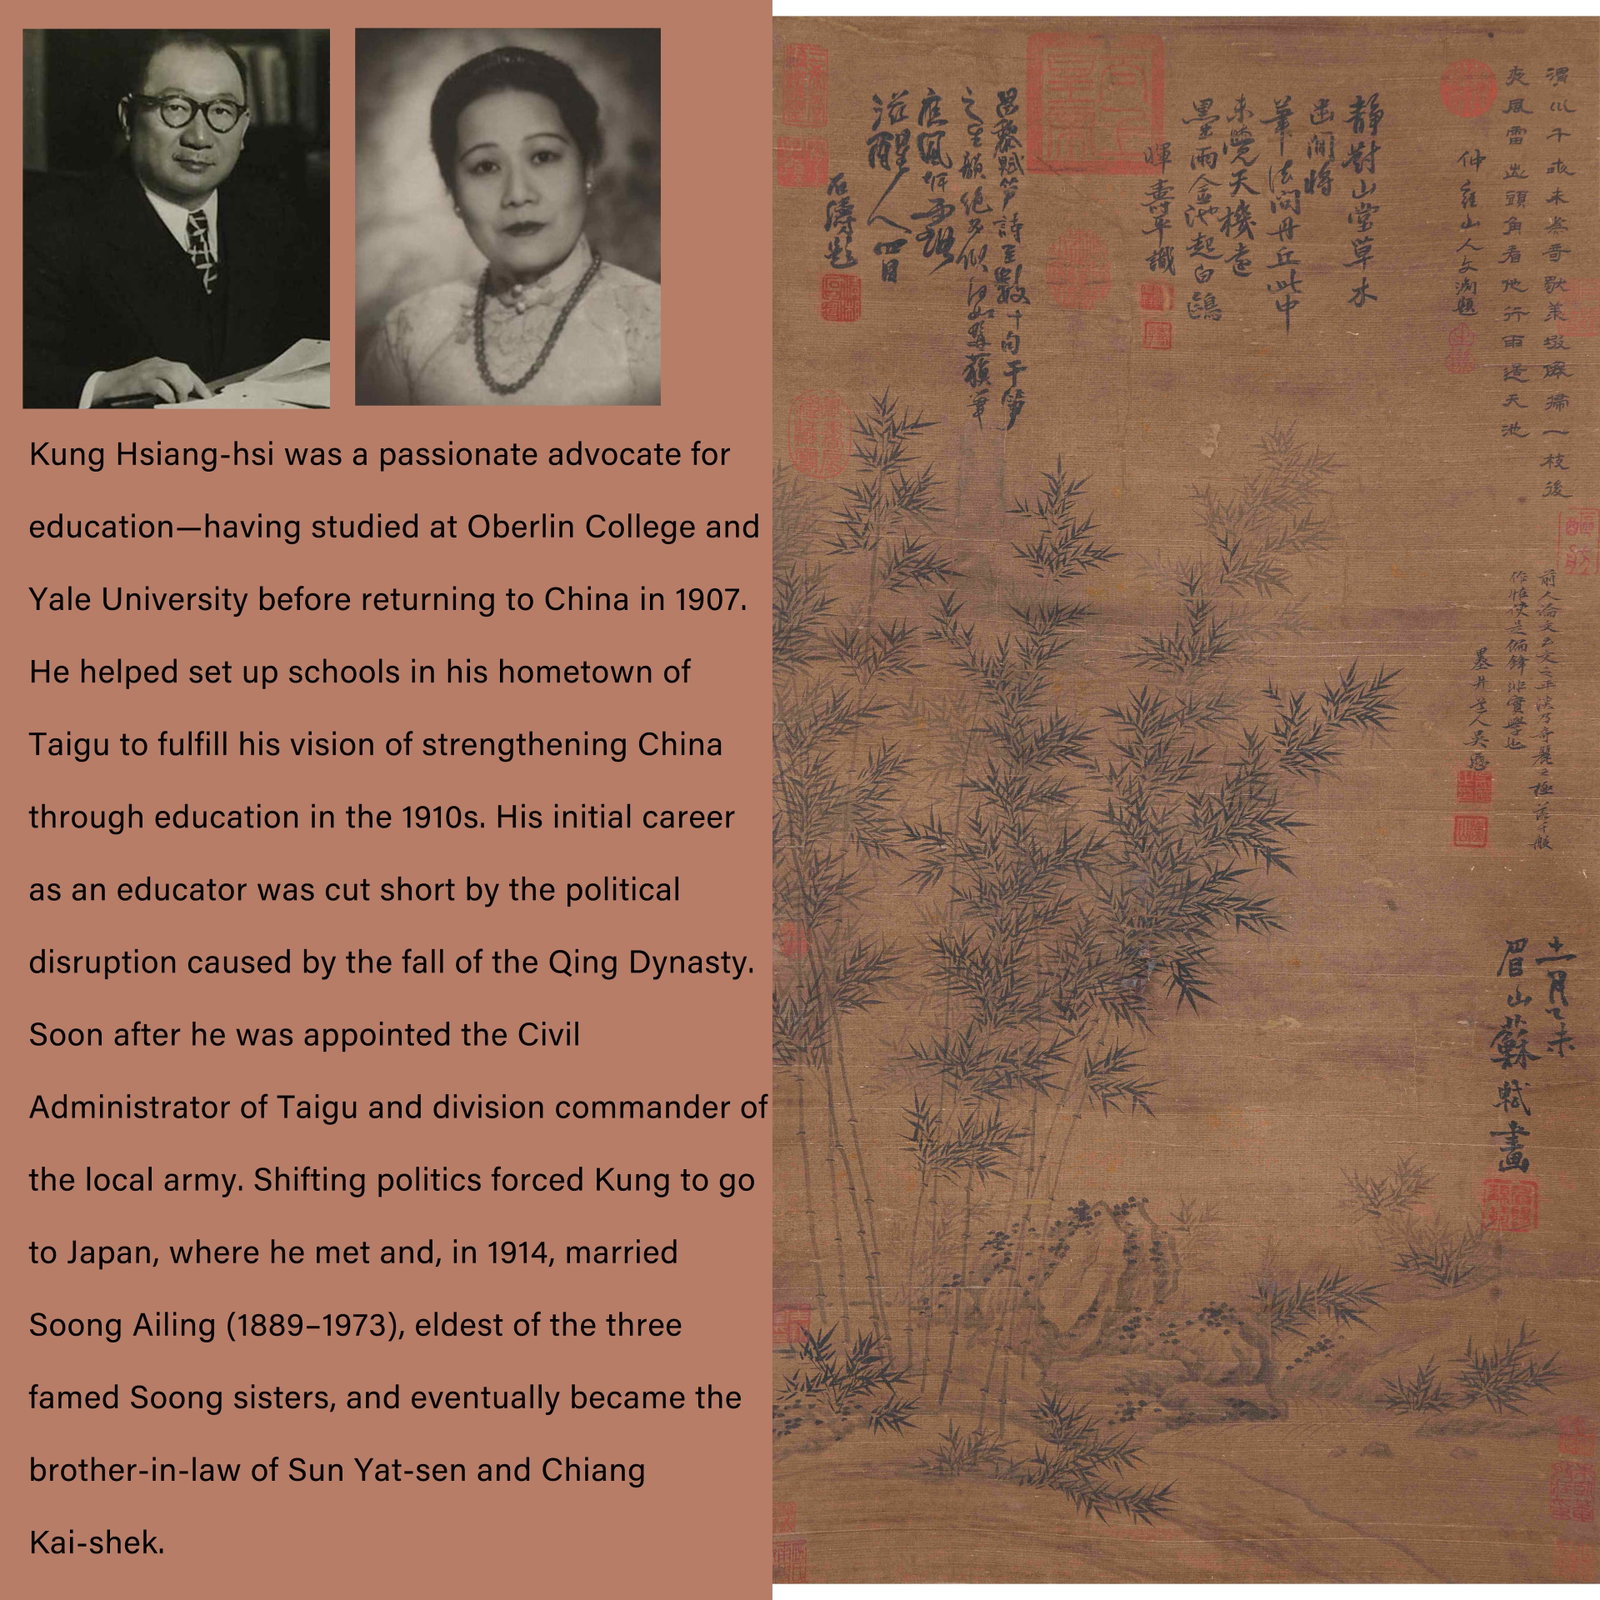 Kung Hsiang-hsi was a passionate advocate for
education—having studied at Oberlin College and
Yale University before returning to China in 1907.
He helped set up schools in his hometown of
Taigu to fulfill his vision of strengthening China
through education in the 1910s. His initial career
as an educator was cut short by the political
disruption caused by the fall of the Qing Dynasty.
Soon after he was appointed the Civil
Administrator of Taigu and division commander of
the local army. Shifting politics forced Kung to go
to Japan, where he met and, in 1914, married
Soong Ailing (1889–1973), eldest of the three
famed Soong sisters, and eventually became the
brother-in-law of Sun Yat-sen and Chiang
Kai-shek.
渭川千畝未為奇
一枝後
風雷出頭角看他行雨過天池
山人文
靜對山堂草木
幽閒將
筆法問丹丘此中
未覺天機遠
墨雨金池起白鷗
惲壽平識
昌黎賦笋詩至數十句
石濤題
前人論文
墨井道人吳歷
十一月乙未
眉山蘇軾畫